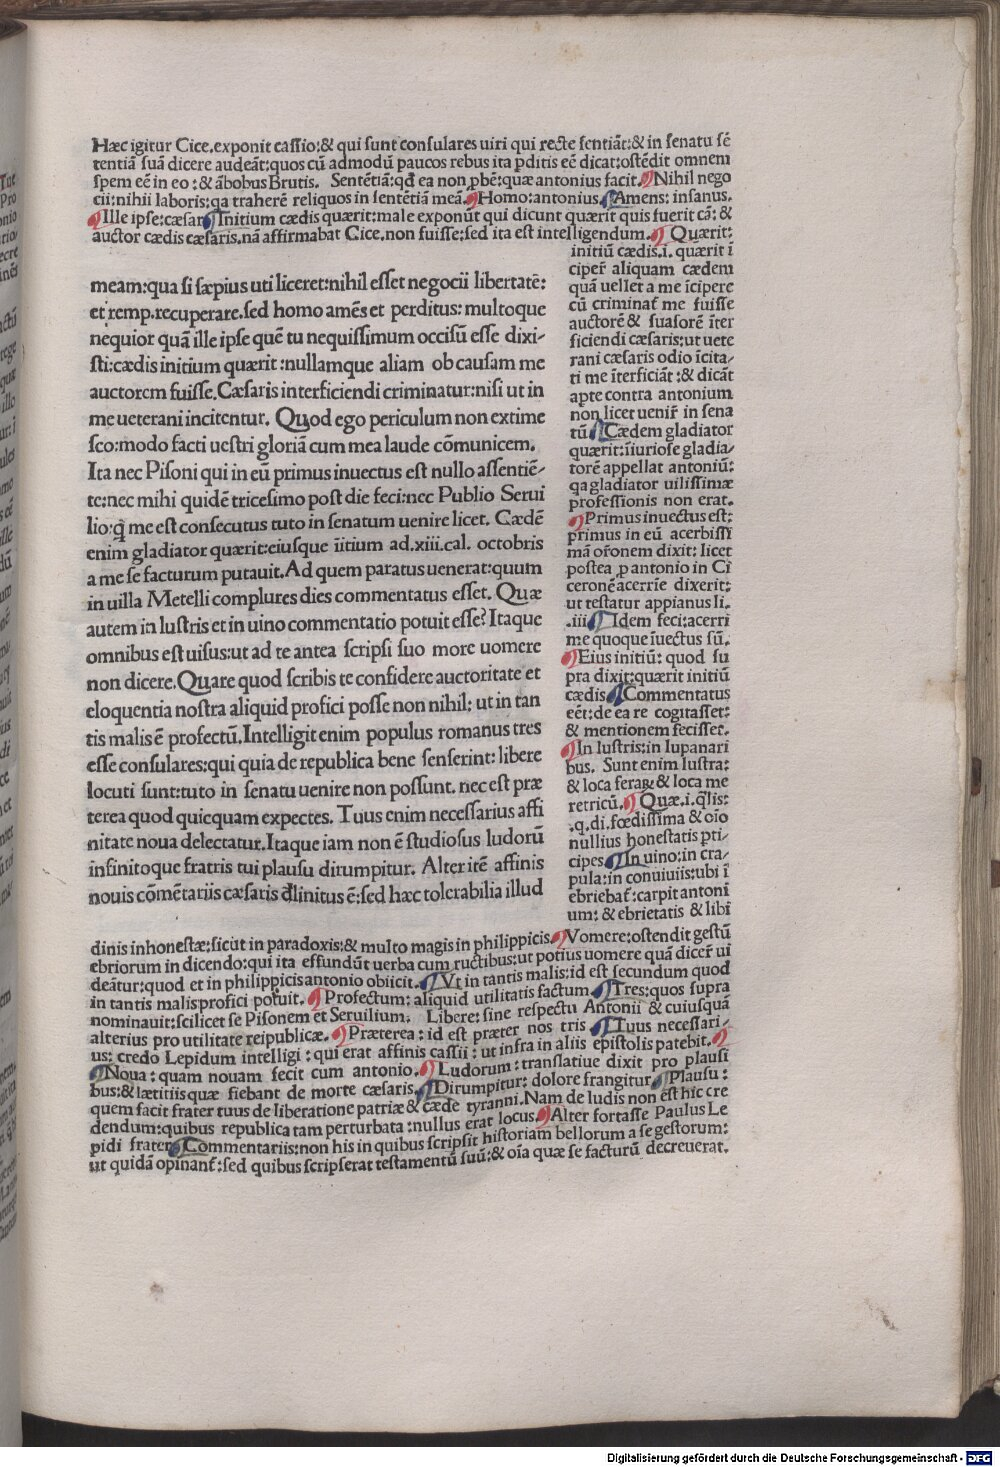 Hæc igitur Cice.exponit cassio:& qui sunt consulares uiri qui recte sentiāt:& in senatu sē
tentiā suā dicere audeāt:quos cū admodū paucos rebus ita pditis eē dicat:ostēdit omnem
spem eē in eo:& ābobus Brutis. Sentētiā:qđ ea non pbē:quæ antonius facit.¶Nihil nego
cii:nihil laboris:qa traherē reliquos in sentētiā meā.¶Homo:antonius.¶Amens:insanus.
¶Ille ipse:cæsar¶Initium cædis quærit:male exponūt qui dicunt quærit quis fuerit cā:&
auctor cædis cæsaris.nā affirmabat Cice.non fuisse:sed ita est intelligendum.¶Quærit:
initiū cædis.i.quærit ī
cipet̄ aliquam cædem
quā uellet a me īcipere
cū criminat̄ me fuisse
auctorē & suasorē īter
ficiendi cæsaris:ut uete
rani cæsaris odio īcita-
ti me īterficiāt:& dicāt
apte contra antonium
non licet uenir̄ in sena
tū¶Cædem gladiator
quærit:īiuriose gladia-
torē appellat antoniū:
qa gladiator uilissimæ
professionis non erat.
¶Primus inuectus est:
primus in eū acerbissi
mā or̄onem dixit: licet
postea p antonio in Ci
ceronē acerrīe dixerit:
ut testatur appianus li.
.iii¶Idem feci:acerri
me quoque īuectus sū.
¶Eius initiū: quod su
pra dixit:quærit initiū
cædis¶Commentatus
eēt:de ea re cogitasset:
& mentionem fecisset.
¶In lustris:in lupanari
bus. Sunt enim lustra:
& loca feraꝝ & loca me
retricū.¶Quæ.i.qlis:
.q.di.fœdissima & oīo
nullius honestatis pti-
cipes¶In uino:in cra-
pula:in conuiuiis:ubi ī
ebriebat̄:carpit antoni
um: & ebrietatis & libī
meam:qua si sæpius uti liceret:nihil esset negocii libertatē:
et remp.recuperare.sed homo amēs et perditus: multoque
nequior quā ille ipse quē tu nequissimum occisū esse dixi-
sti:cædis initium quærit:nullamque aliam ob causam me
auctorem fuisse.Cæsaris interficiendi criminatur:nisi ut in
me ueterani incitentur. Quod ego periculum non extime
sco:modo facti uestri gloriā cum mea laude cōmunicem.
Ita nec Pisoni qui in eū primus inuectus est nullo assentiē-
te:nec mihi quidē tricesimo post die feci:nec Publio Serui
lio:q̄ me est consecutus tuto in senatum uenire licet. Cædē
enim gladiator quærit:eiusque īitium ad.xiii.cal. octobris
a me se facturum putauit.Ad quem paratus uenerat:quum
in uilla Metelli complures dies commentatus esset. Quæ
autem in lustris et in uino commentatio potuit esse? Itaque
omnibus est uisus:ut ad te antea scripsi suo more uomere
non dicere.Quare quod scribis te confidere auctoritate et
eloquentia nostra aliquid profici posse non nihil: ut in tan
tis malis ē profectū.Intelligit enim populus romanus tres
esse consulares:qui quia de republica bene senserint: libere
locuti sunt:tuto in senatu uenire non possunt. nec est præ
terea quod quicquam expectes. Tuus enim necessarius affi
nitate noua delectatur.Itaque iam non ē studiosus ludorū
infinitoque fratris tui plausu dirumpitur. Alter itē affinis
nouis cōmētariis cæsaris dlinitus ē:sed hæc tolerabilia illud
dinis inhonestæ:sicut in paradoxis:& multo magis in philippicis.¶Vomere:ostendit gestū
ebriorum in dicendo:qui ita effundūt uerba cum ructibus:ut potius uomere quā dicer̄ ui
deātur:quod et in philippicis antonio obiicit.¶Vt in tantis malis:id est secundum quod
in tantis malis profici potuit. ¶Profectum: aliquid utilitatis factum.¶Tres:quos supra
nominauit:scilicet se Pisonem et Seruilium. Libere: sine respectu Antonii & cuiusquā
alterius pro utilitate reipublicæ.¶Præterea: id est præter nos tris¶Tuus necessari-
us: credo Lepidum intelligi: qui erat affinis cassii: ut infra in aliis epistolis patebit.¶
¶Noua: quam nouam fecit cum antonio.¶Ludorum: translatiue dixit pro plausi
bus:& lætitiis quæ fiebant de morte cæsaris.¶Dirumpitur: dolore frangitur¶Plausu:
quem facit frater tuus de liberatione patriæ & cæde tyranni.Nam de ludis non est hic cre
dendum:quibus republica tam perturbata:nullus erat locus.¶Alter fortasse Paulus Le
pidi frater¶Commentariis:non his in quibus scripsit historiam bellorum a se gestorum:
ut quidā opinant̄:sed quibus scripserat testamentū suū:& oīa quæ se facturū decreuerat.
Digitalisierung gefördert durch die Deutsche Forschungsgemeinschaft - DFG